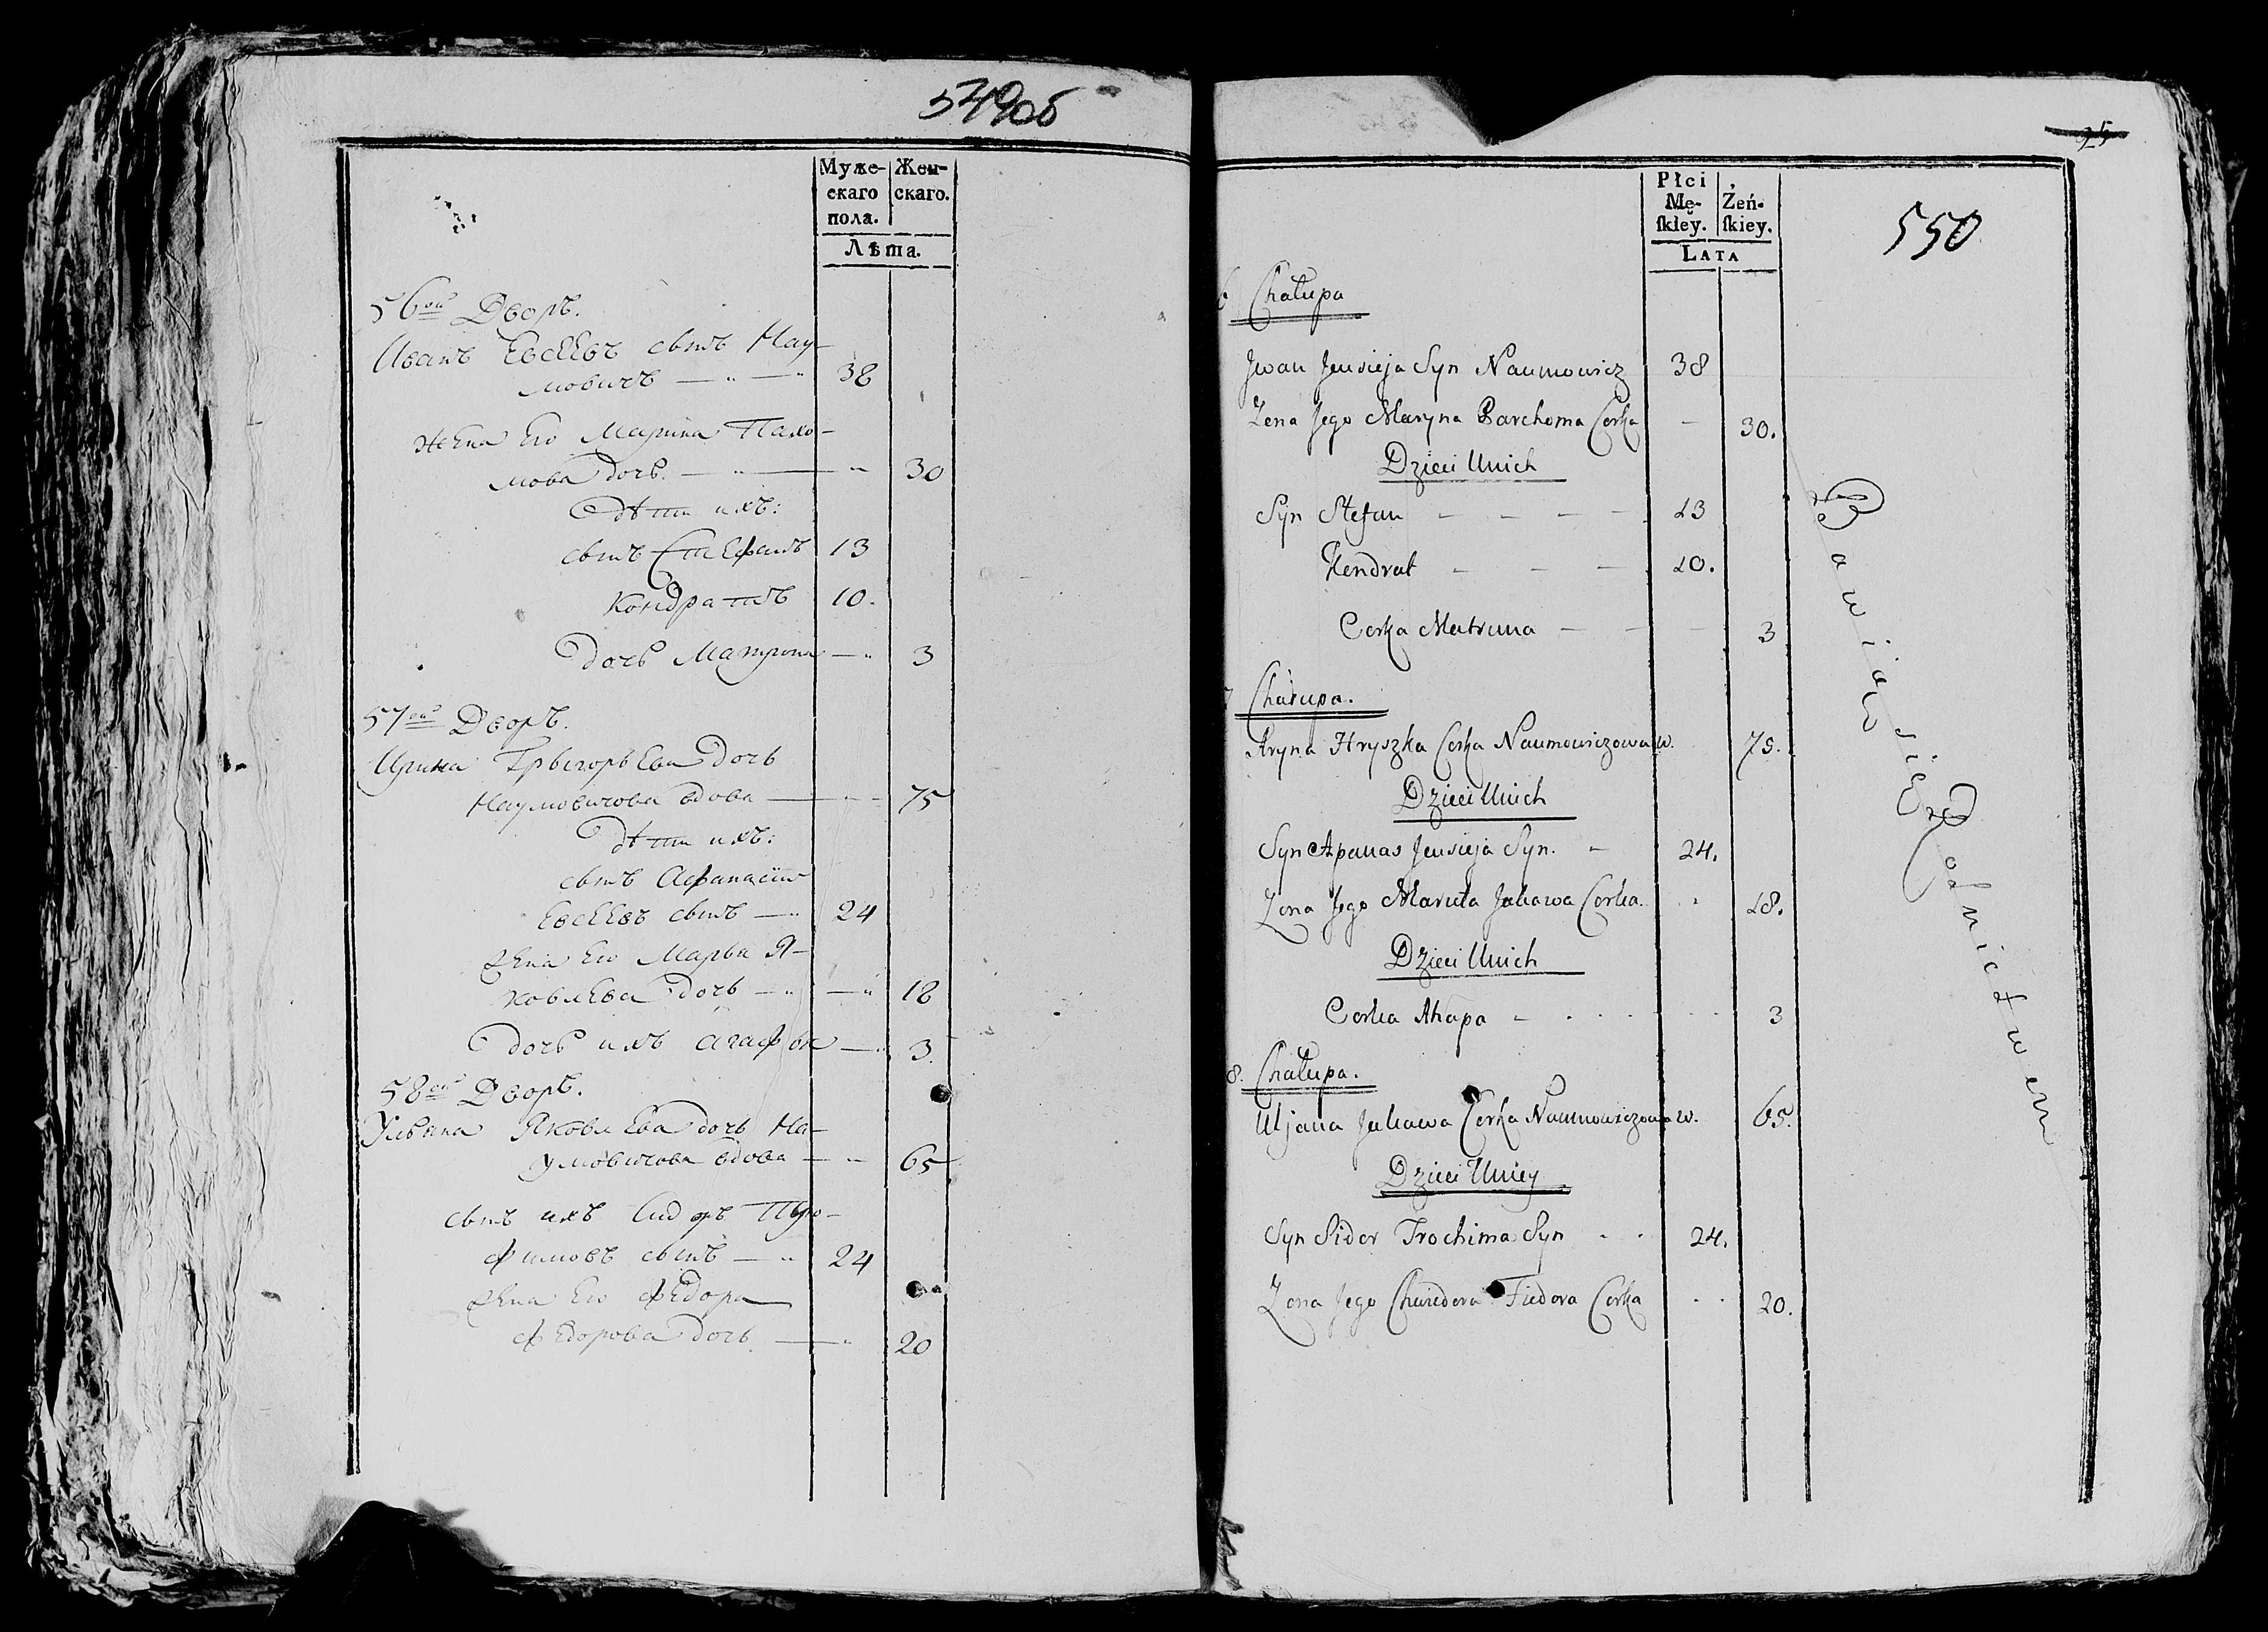 549об
Муже-
скаго
пола.
Жен-
скаго.
Лѣта.
56ой Дворъ.
Иванъ Евсеевъ сынъ Нау-
мовичъ — „ — „ 38
жена Его Марина Пахо-
мова дочь — „ — „ 30
Дѣти ихъ:
сынъ Стефанъ 13
Кондратъ 10.
Дочь Матрона — „ 3
57ой Дворъ.
Ирина Грыгорьева дочь
Наумовичова вдова — „ — 75
Дѣти ихъ:
сынъ Афанасiй
Евсеевъ сынъ — „ 24
жена Его Марья Я-
ковлева дочь — „ — „ 18
Дочь ихъ Агафья — „ 3.
58ой Дворъ.
Ульяна Яковлева дочь На-
умовичова вдова — „ 65
сынъ ихъ Сидоръ Тро-
фимовъ сынъ — „ 24
жена Его Федора
Федорова дочь — „ 20
25
550
Płci
Mę-
ſkiey.
Żeń-
ſkiey.
LATA
6 Chałupa
Jwan Jewsieja Syn Naumowicz 38
Zena Jego Maryna Parchoma Corka — 30.
Dzieci Unich
Syn Stefan — — — — 13
Kendrat — — — 10.
Corka Matruna — — — 3
7 Chałupa.
Aryna Hryszka Corka Naumowiczowa w. 75.
Dzieci Unich
Syn Apanas Jewsieja Syn. — 24.
Zona Jego Maruta Jakawa Corka. . 18.
Dzieci Unich
Corka Ahapa — . . . . . 3
8. Chałupa.
Uljana Jakawa Corka Naumowiczowa w. 65.
Dzieci Uniey
Syn Sidor Trochima Syn . . 24.
Zona Jego Chwiedora Fiedora Corka . . 20.
Bawiąc się Rolnictwem